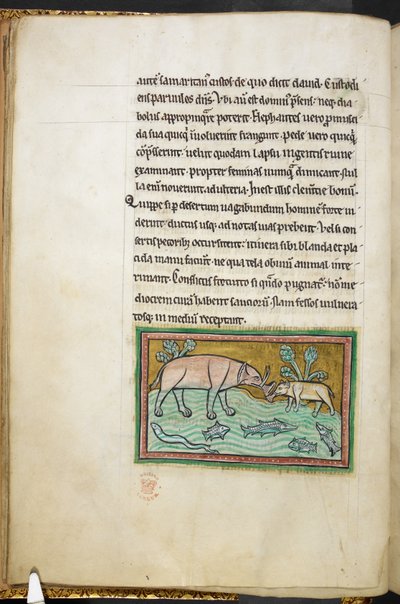 autē samaritan᷒ custos de quo dicit david. Custodi
ens parvulos dn̄s. Ubi aū est domin᷒ p̄sens. neq; dia
bolus appropinquare poterit. Elephantes vero p̄muscī
da sua quicq̄ involverint frangunt. pede vero quicq̄
cōp̄sserint. velut quodam lapsu ingentis ruine
exanimant. propter feminas nunquā dimicant. Nul
la enī noverunt adulteria. Inest illis clemētie bonū.
Quippe si p̄ desertum vagabundum hominē forte vi
derint. ductus usq; ad notas vias prebent. Vel si con
sertis pecorib; occursitent. itinera sibi blanda et pla
cida manu faciūt. ne qua tela obvium animal inte
rimant. Conflictus fortuito si quādo pugnat᷒. nō me
diocrem curā habent sauciorū. Nam fessos vulnera
tosq; in mediū receptant.